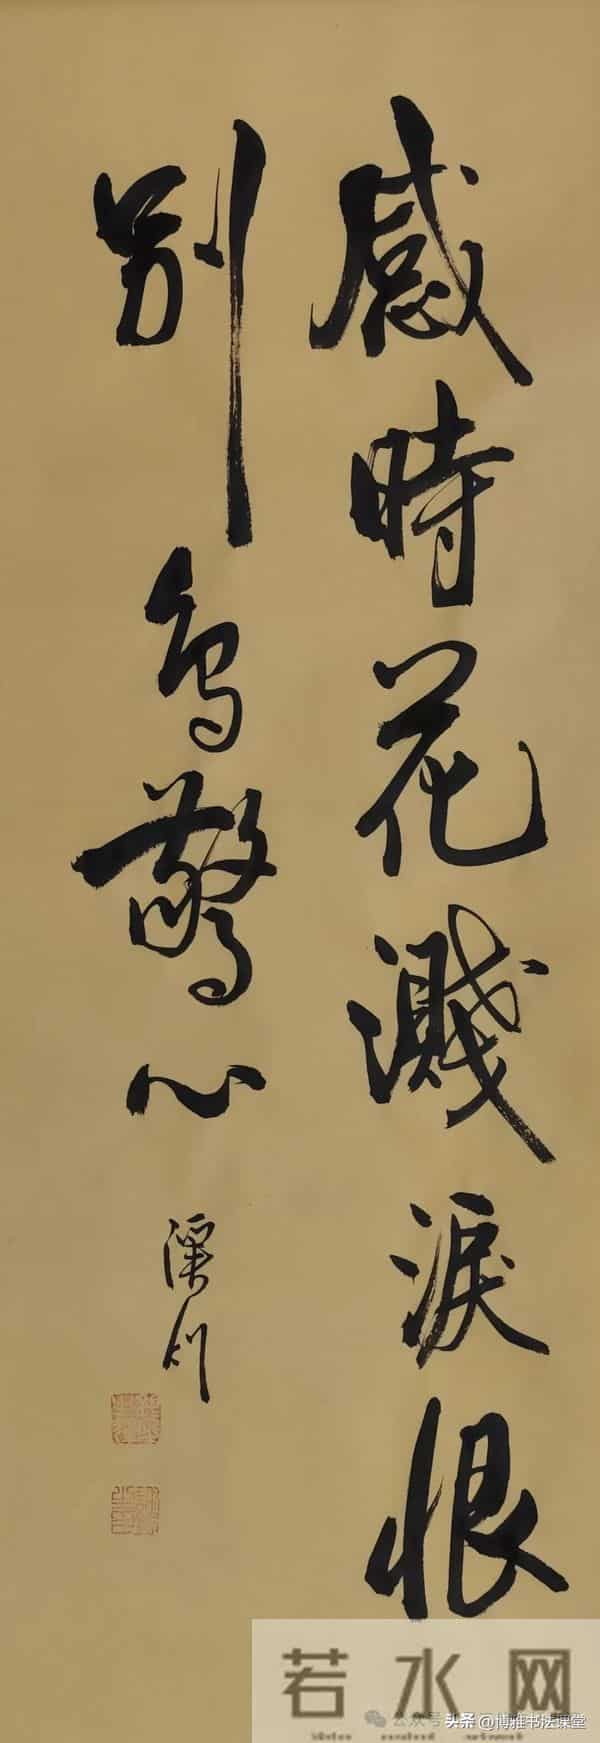 感時花濺淚恨
別鳥驚心
若水网
公众号
头条@博雅书法课堂